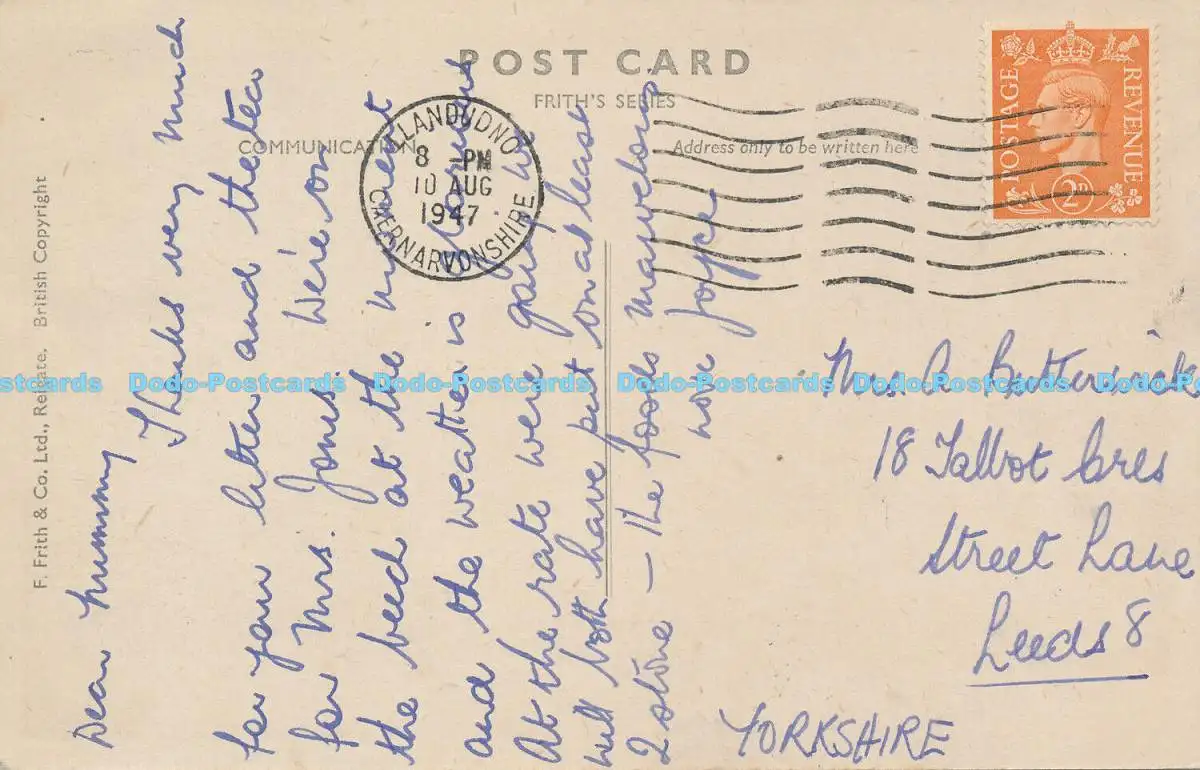 POST CARD
FRITH'S SERIES
COMMUNICATION
Address only to be written here
F. Frith & Co. Ltd., Reigate. British Copyright
LLANDUDNO
8 - PM
10 AUG
1947
CAERNARVONSHIRE
POSTAGE
REVENUE
2D
Dear Mummy
Thanks very much
for your letter and the letter
for Mrs. Jones. We're on
the beech at the moment
and the weather is glorious
At the rate were going we
will both have put on at least
2 stone – the foods marvelous
love Joyce
Mrs. A Butterwick
18 Talbot Cres
Street Lane
Leeds 8
YORKSHIRE
Dodo-Postcards Dodo-Postcards Dodo-Postcards Dodo-Postcards Dodo-Postcards